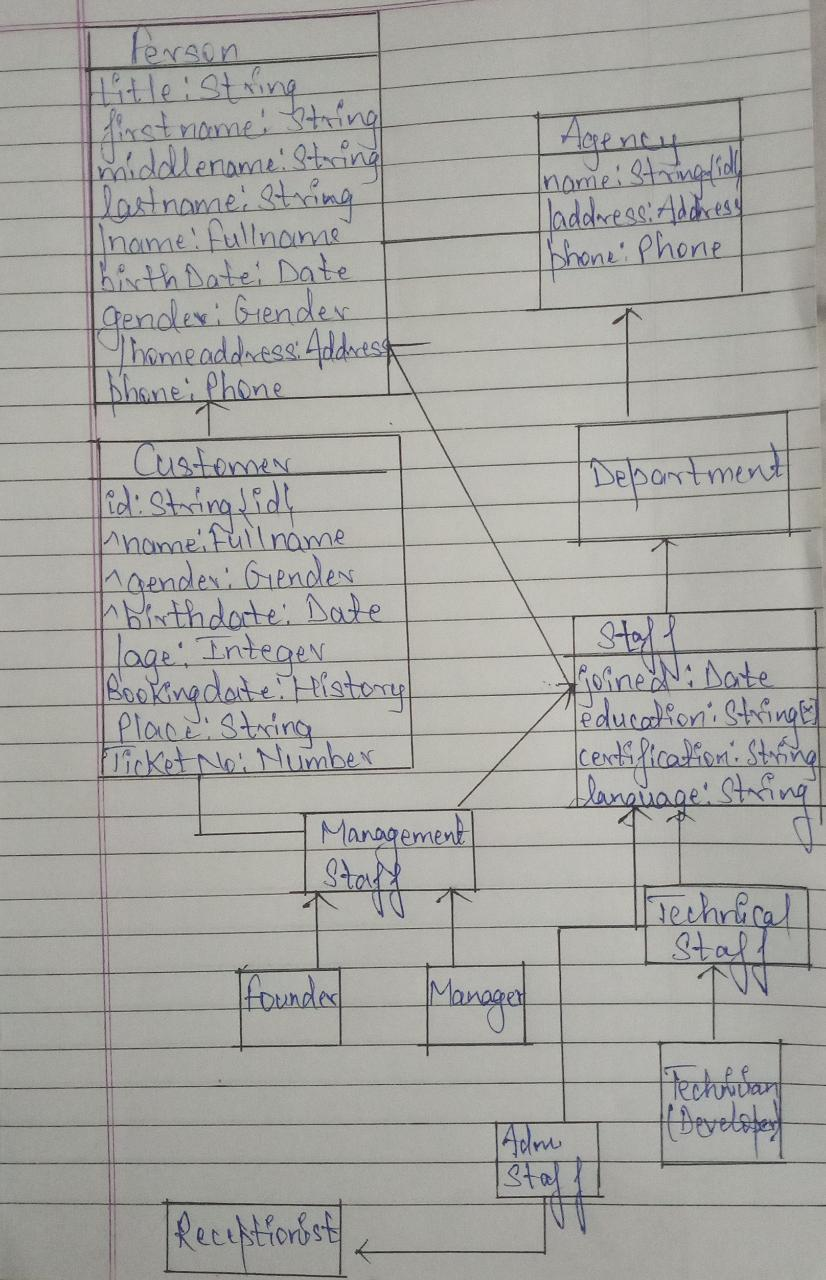 Person
title: String
firstname: String
middlename: String
lastname: String
/name: Fullname
birthDate: Date
gender: Gender
/homeaddress: Address
phone: Phone
Agency
name: String{id}
/address: Address
phone: Phone
Customer
id: String{id}
^name: Fullname
^gender: Gender
^birthdate: Date
/age: Integer
Bookingdate: History
Place: String
Ticket No: Number
Department
Staff
joined: Date
education: String[*]
certification: String
language: String
Management
Staff
Founder
Manager
Technical
Staff
Technician
(Developer)
Adm
Staff
Receptionist